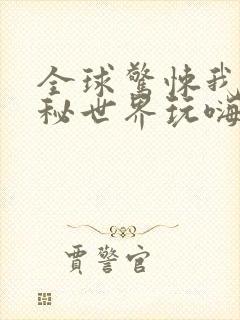 全球驚悚我
秘世界玩嗨
賈警官